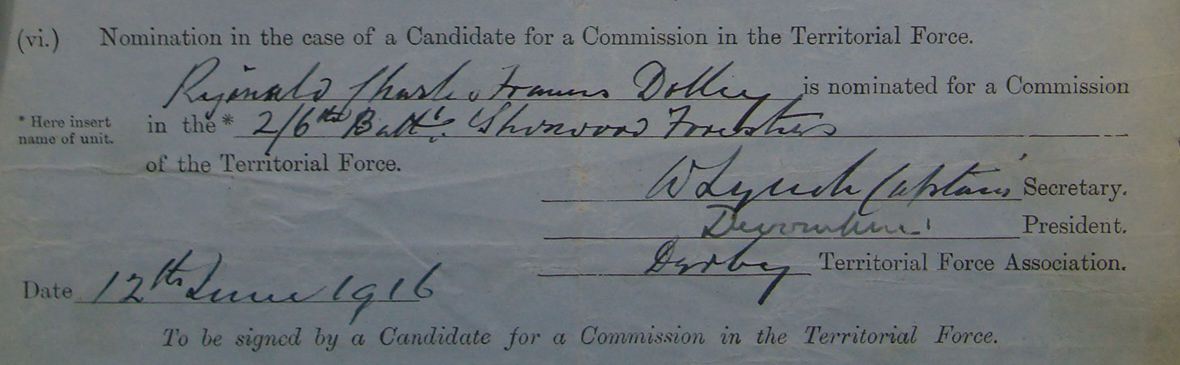 (vi.) Nomination in the case of a Candidate for a Commission in the Territorial Force.
Reginald Francis is nominated for a Commission
* Here insert name of unit.
in the * 2/6th Battn. Sherwood Foresters
of the Territorial Force.
W Lynch Captain Secretary.
Devonshire President.
Derby Territorial Force Association.
Date 12th June 1916
To be signed by a Candidate for a Commission in the Territorial Force.